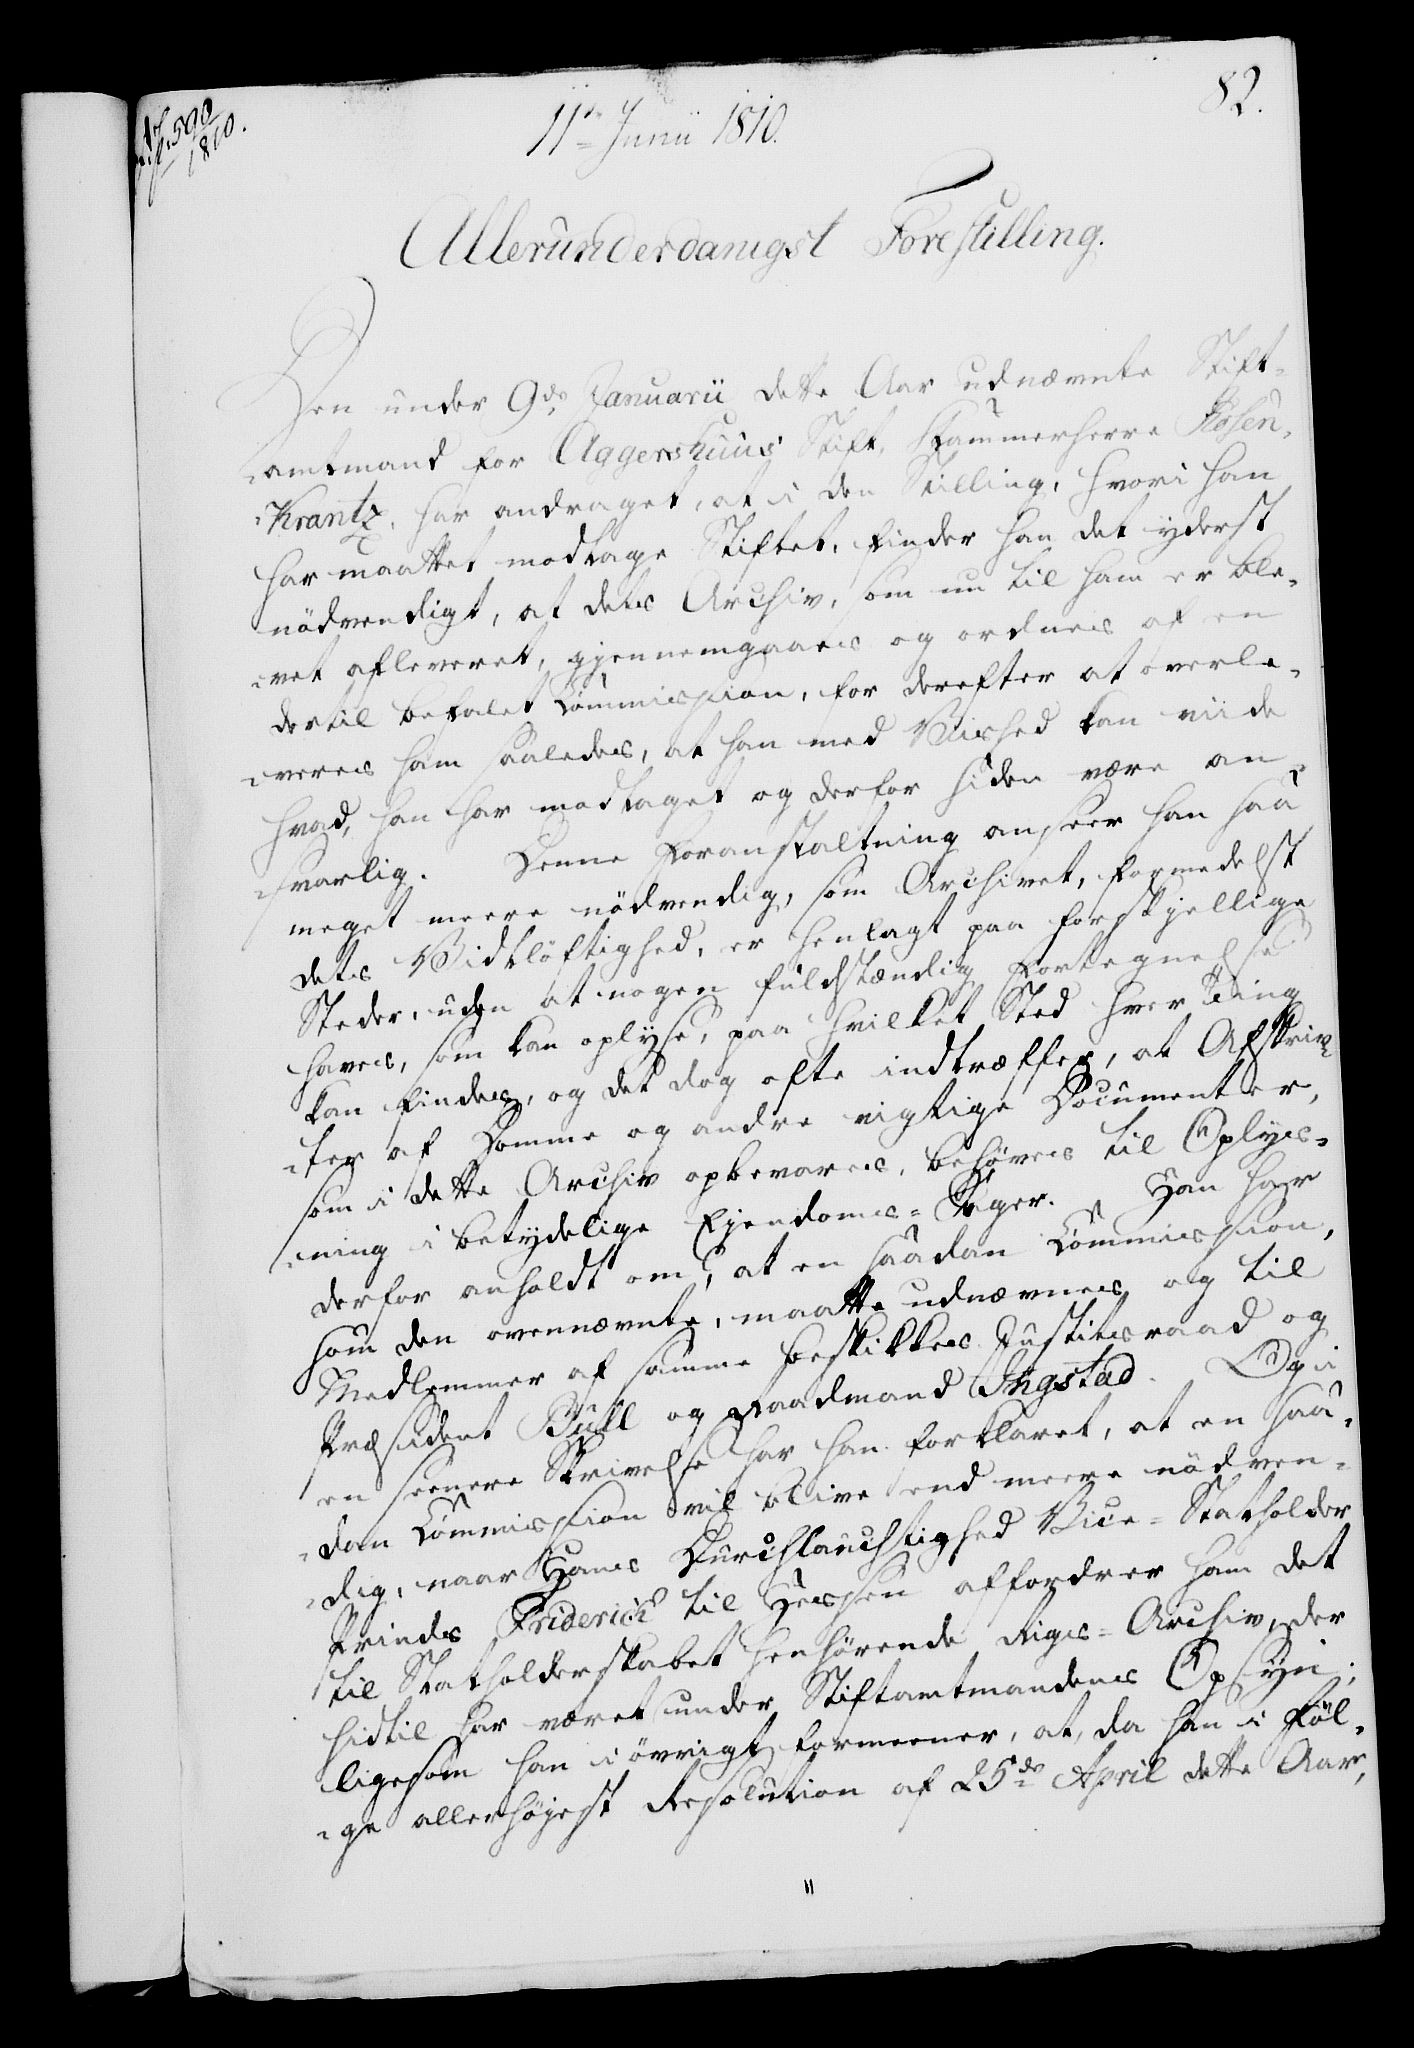 590
1810.
11te Junii 1810.
82.
Allerunderdanigst Forestilling.
Den under 9de Januarii dette Aar udnævnte Stift-
amtmand for Aggershuus Stift, Kammerherre Rosen-
Krantz, har andraget, at i den Stilling, hvori han
har maattet modtage Stiftet, finder han det yderst
nödvendigt, at dets Archiv, som nu til ham er ble-
vet afleveret, gjennemgaaes og ordnes af en
dertil befalet Commission, for derefter at overle-
veres ham saaledes, at han med Vished kan viide
hvad, han har modtaget og derfor siden være an-
svarlig. Denne Foranstaltning anseer han saa
meget meere nödvendig, som Archivet, formedelst
dets Vidtlöftighed, er henlagt paa forskjellige
Steder, uden at nogen fuldstændig Fortegnelse
haves, som kan oplyse, paa hvilket Sted hver Ting
kan findes, og det dog ofte indtræffer, at Afskriv-
ter af Domme og andre vigtige Documenter,
som i dette Archiv opbevares, behöves til Oplys-
ning i betydelige Ejendoms-Sager. Han har
derfor anholdt om, at en saadan Commission,
som den ovennævnte, maatte udnævnes og til
Medlemmer af samme beskikkes Justitsraad og
Præsident Bull og Raadmand Ingstad. Og i
en seenere Skrivelse har han forklaret, at en saa-
dan Commission vil blive end meere nödven-
dig, naar Hans Durchlauchtighed Vice-Statholder
Prinds Friderich til Hessen affordrer ham det
til Statholderskabet henhörende Rigs-Archiv, der
hidtil har været under Stiftamtmandens Opsyn;
ligesom han i övrigt formeener, at, da han i Föl-
ge allerhöjest Resolution af 25de April dette Aar,